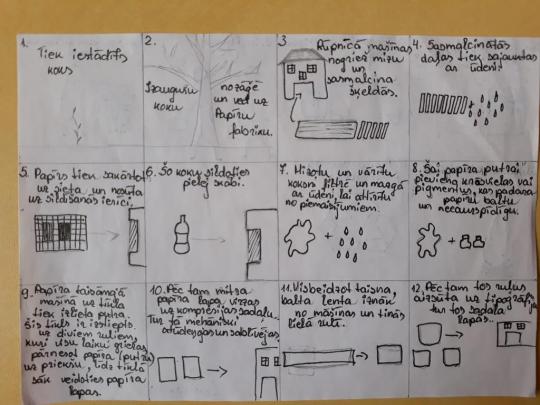 1.
Tiek iestādīts
koks
2.
Izaugušu
koku
nozāģē
un ved uz
Papīru
fabriku.
3
Rūpnīcā mašīnas
nogriež mizu
un
sasmalcina
šķeldās.
4. Sasmalcinātās
daļas tiek sajauktas
ar ūdeni.
5. Papīrs tiek sakārtots
uz sieta un nosūta
uz sildīšanas ierīci.
6. Šo koku sildoties
pielej skābi.
7. Mizotu un vārītu
koksni filtrē un mazgā
ar ūdeni, lai attīrītu
no piemaisījumiem.
8. Šai papīra putrai
pievieno krāsvielas vai
pigmentus, kas padara
papīru baltu
un necaurspīdīgu.
9. Papīra taisāmajā
mašīnā uz tīkla
tiek izlieta putra.
Šis tīkls ir izstiepts
uz diviem ruļļiem,
kuri visu laiku griežas
pārnesot papīra putru
uz priekšu, līdz tīklā
sāk veidoties papīra
lapas.
10. Pēc tam mitra
papīra lapa virzās
uz kompresijas sadaļu.
Tur tā mehāniski
11. Visbeidzot taisna,
balta lenta iznāk
no mašīnas un tinās
lielā rullī.
12. Pēc tam tos ruļus
aizsūta uz tipogrāfiju
tur tos sadala
lapās.